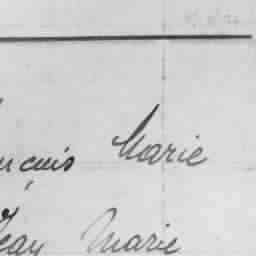 nçois Marie
Jean Marie